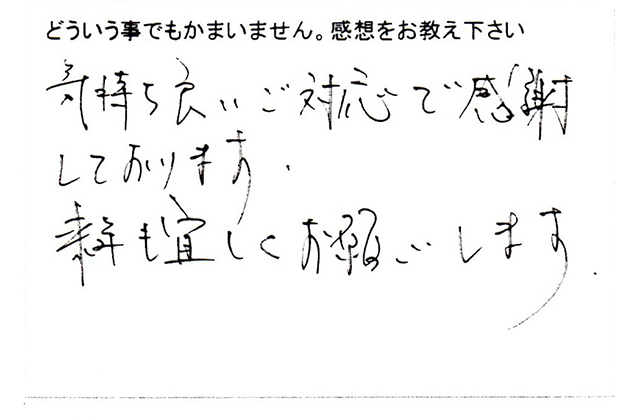 どういう事でもかまいません。感想をお教え下さい
気持ち良いご対応で感謝
しております.
来年も宜しくお願いします.